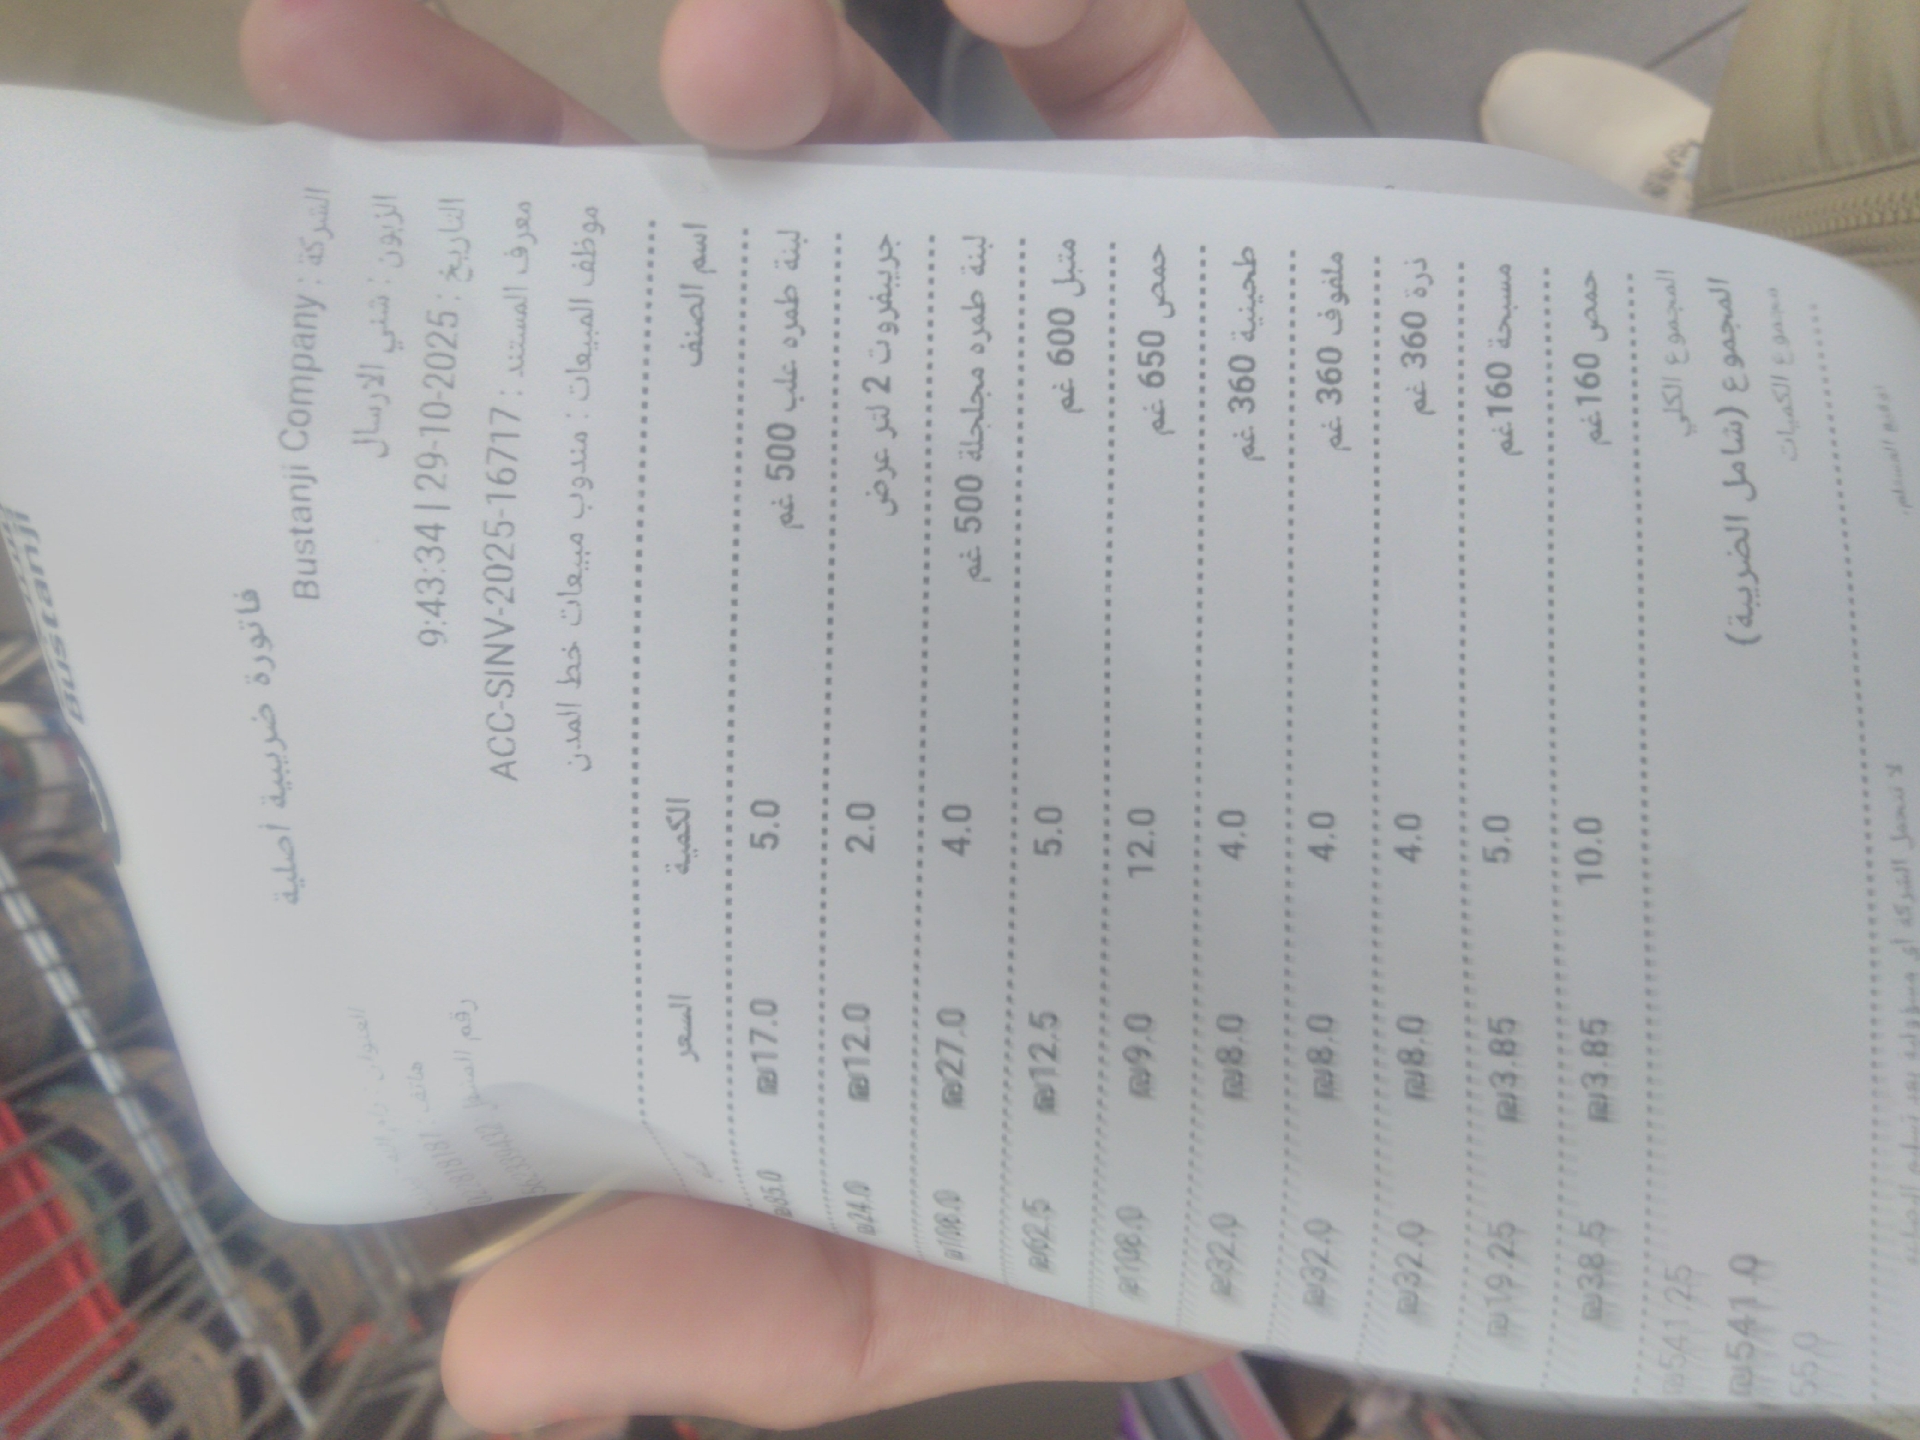 Bustanji
فاتورة ضريبية أصلية
الشركة : Bustanji Company
الزبون : شني الارسال
العنوان
هاتف
رقم المشتغل
التاريخ : 29-10-2025 | 9:43:34
معرف المستند : ACC-SINV-2025-16717
موظف المبيعات : مندوب مبيعات خط المدن
اسم الصنف الكمية السعر
لبنة طمره علب 500 غم 5.0 ₪17.0 ₪85.0
جريبفروت 2 لتر عرض 2.0 ₪12.0 ₪24.0
لبنة طمره مجلجلة 500 غم 4.0 ₪27.0 ₪108.0
متبل 600 غم 5.0 ₪12.5 ₪62.5
حمص 650 غم 12.0 ₪9.0 ₪108.0
طحينية 360 غم 4.0 ₪8.0 ₪32.0
ملفوف 360 غم 4.0 ₪8.0 ₪32.0
ذرة 360 غم 4.0 ₪8.0 ₪32.0
مسبحة 160غم 5.0 ₪3.85 ₪19.25
حمص 160غم 10.0 ₪3.85 ₪38.5
المجموع الكلي ₪541.25
المجموع (شامل الضريبة) ₪541.0
مجموع الكميات 55.0
توقيع المستلم
لا تتحمل الشركة أي مسؤولية بعد تسليم البضاعة